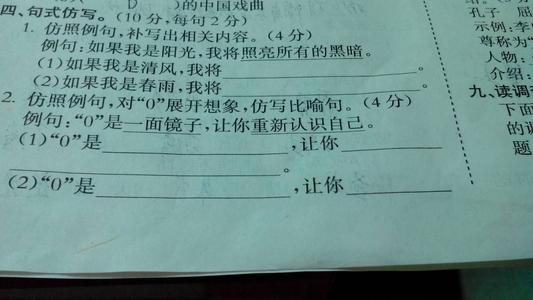 D )的中国戏曲
四、句式仿写。(10分,每句2分)
1. 仿照例句,补写出相关内容。(4分)
例句:如果我是阳光,我将照亮所有的黑暗。
(1)如果我是清风,我将。
(2)如果我是春雨,我将。
2. 仿照例句,对“0”展开想象,仿写比喻句。(4分)
例句:“0”是一面镜子,让你重新认识自己。
(1)“0”是,让你
。
(2)“0”是,让你
孔子 屈
示例:李
尊称为“
人物:
介绍:
九、读调
下面
的调
题